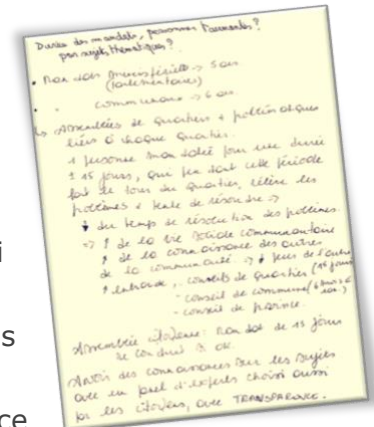 Durée des mandats, personnes tournantes?
par sujets thématiques?
• Mandats ministériels → 5 ans
(parlementaires)
• communaux → 6 ans.
↳ Assemblées de quartiers + problématiques
liées à chaque quartier.
1 personne mandatée pour une durée
± 15 jours, qui pendant cette période
fait le tour du quartier, relève les
problèmes + tente de résoudre ⇒
↓ du temps de résolution des problèmes
⇒ ↑ de la vie sociale communautaire
↑ de la connaissance des autres
de la communauté → ↓ peur de l'autre
↑ entraide, conseils de quartiers (15 jours)
- conseil de commune (6 mois
- conseil de province.
Assemblée citoyenne: mandat de 15 jours
OK.
Avoir des connaissances sur les sujets
avec un panel d'experts choisi aussi
par les citoyens, avec TRANSPARENCE.
i
s
ce